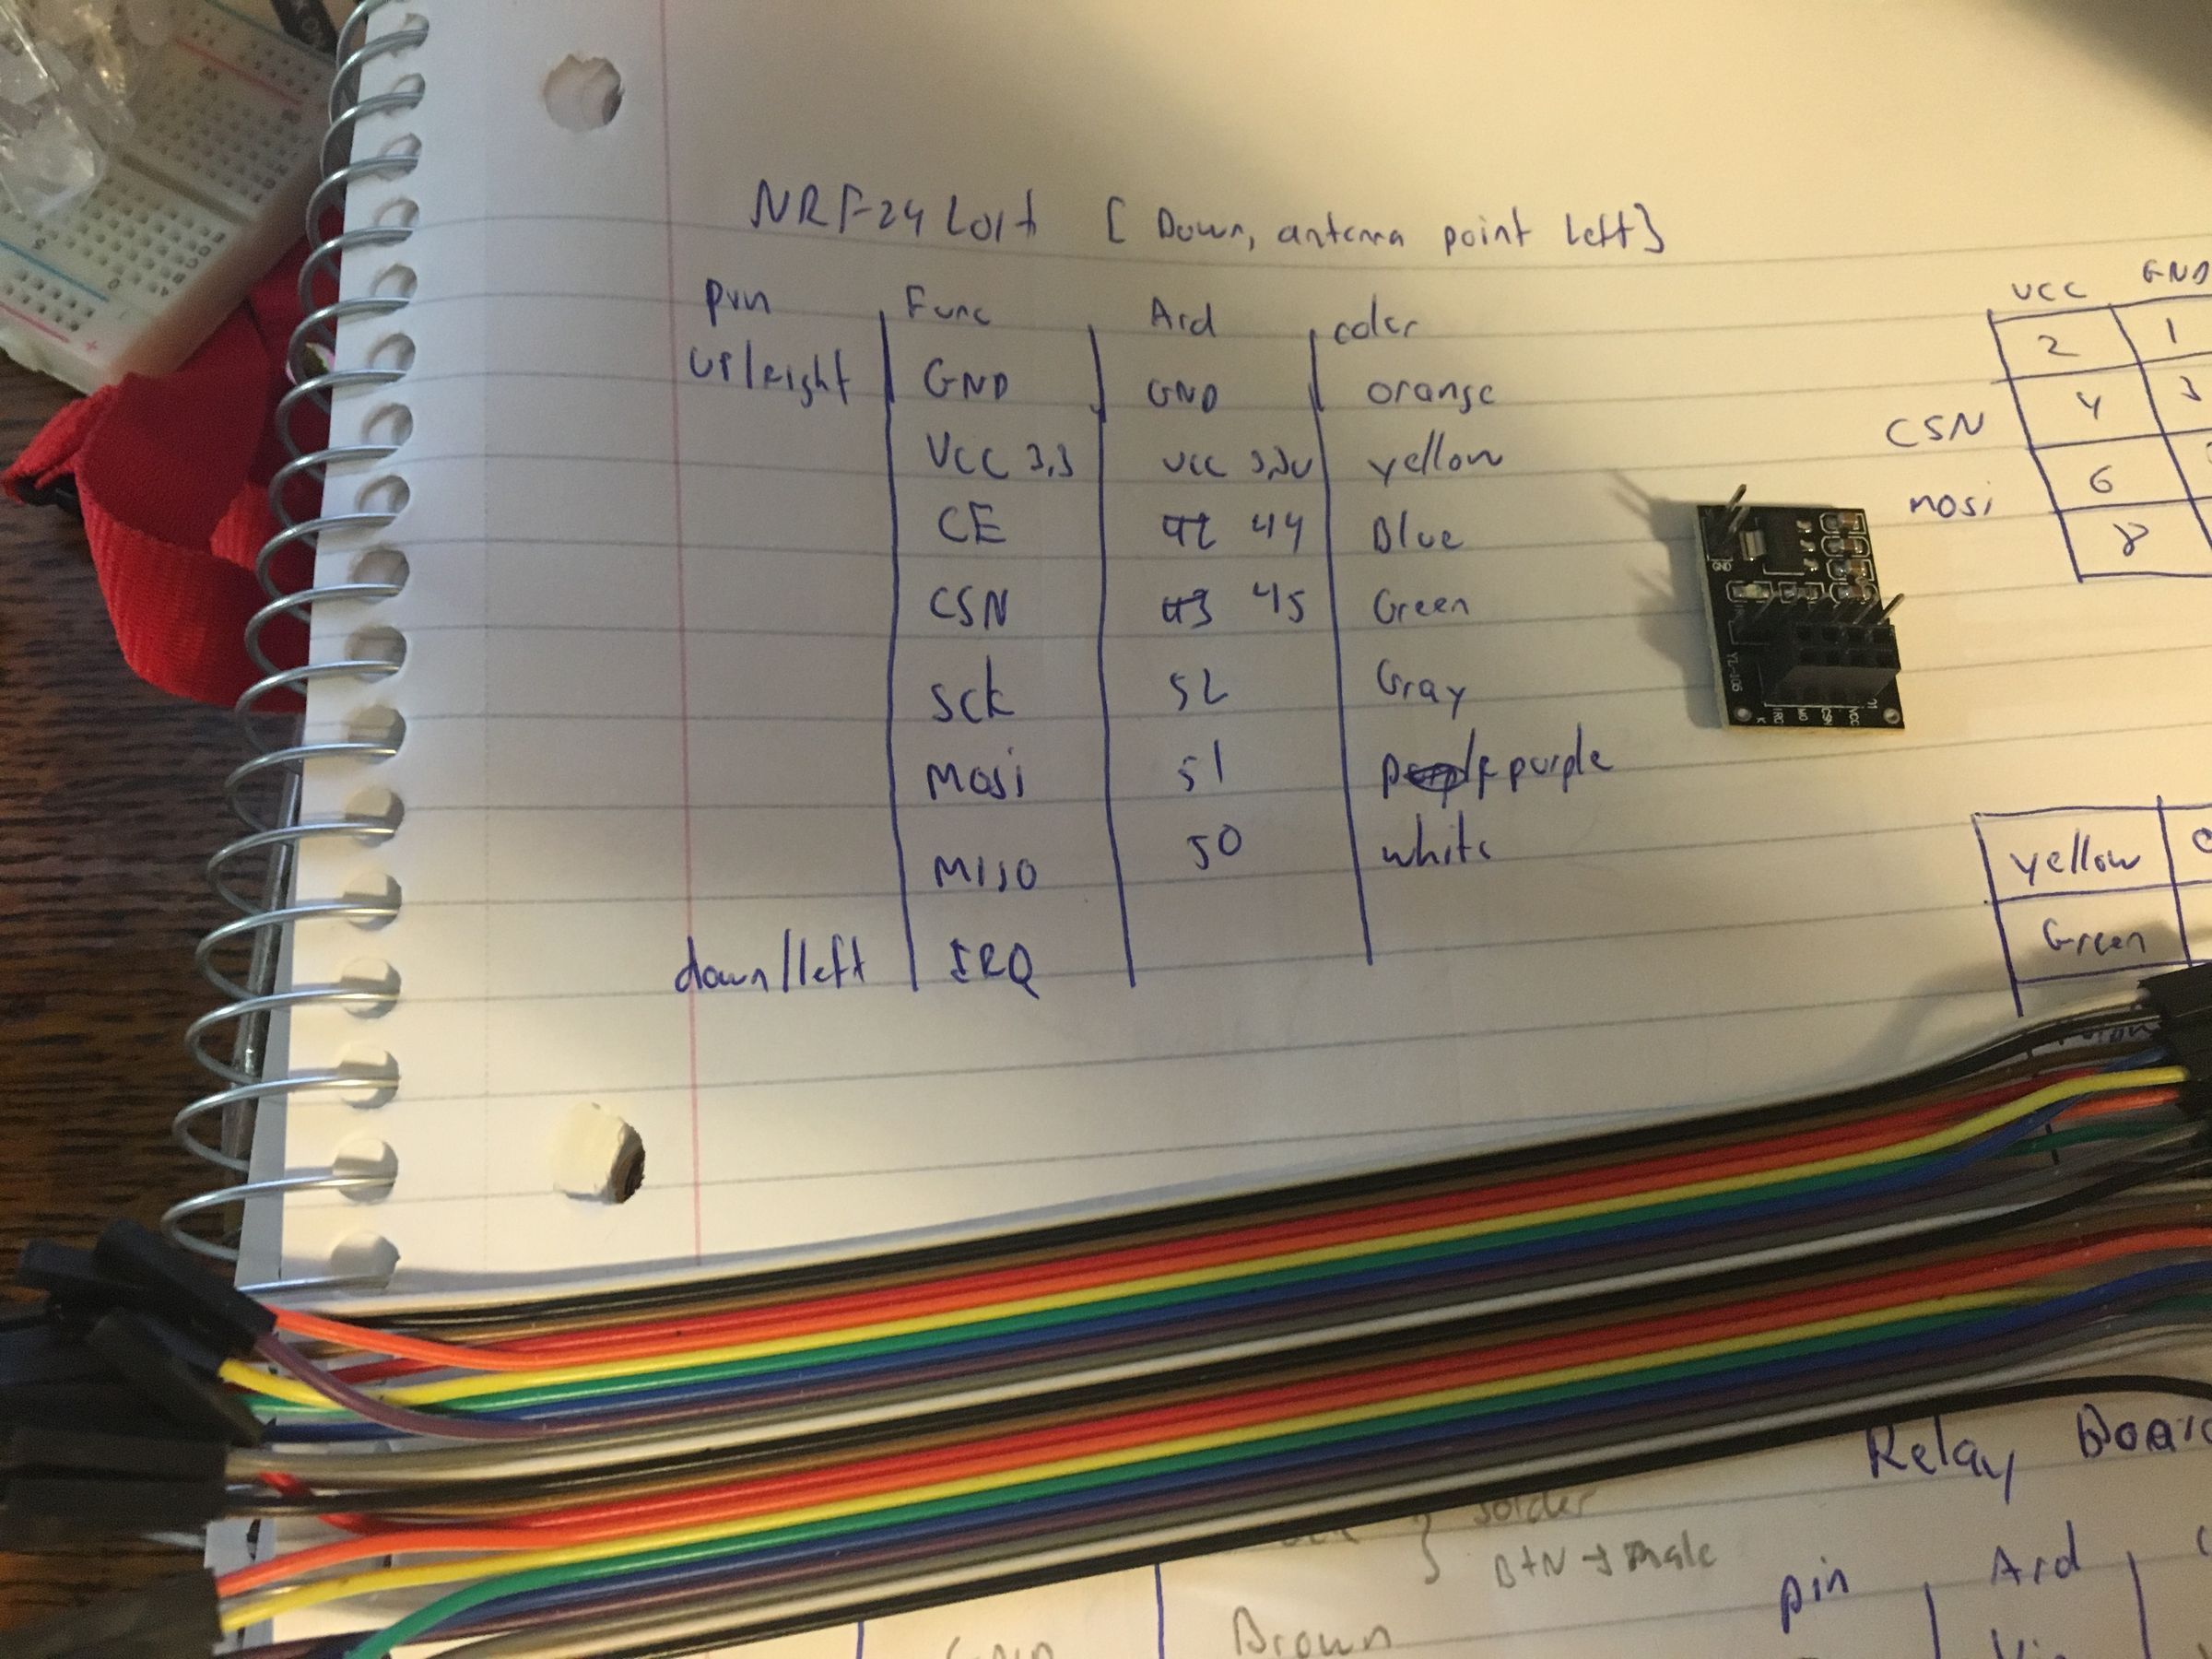 NRF24L01+ [Down, antenna point Left]
pin Func Ard color
UP/Right GND GND orange
VCC 3.3 VCC 3.3V yellow
CE 42 44 Blue
CSN 43 45 Green
SCK 52 Gray
MOSI 51 purple
MISO 50 white
down/left IRQ
VCC GND
2 1
CSN 4 3
MOSI 6
8
yellow
Green
GND
YL-105
CSN VCC
Relay Board
solder
BTN → male
pin Ard
GND Brown